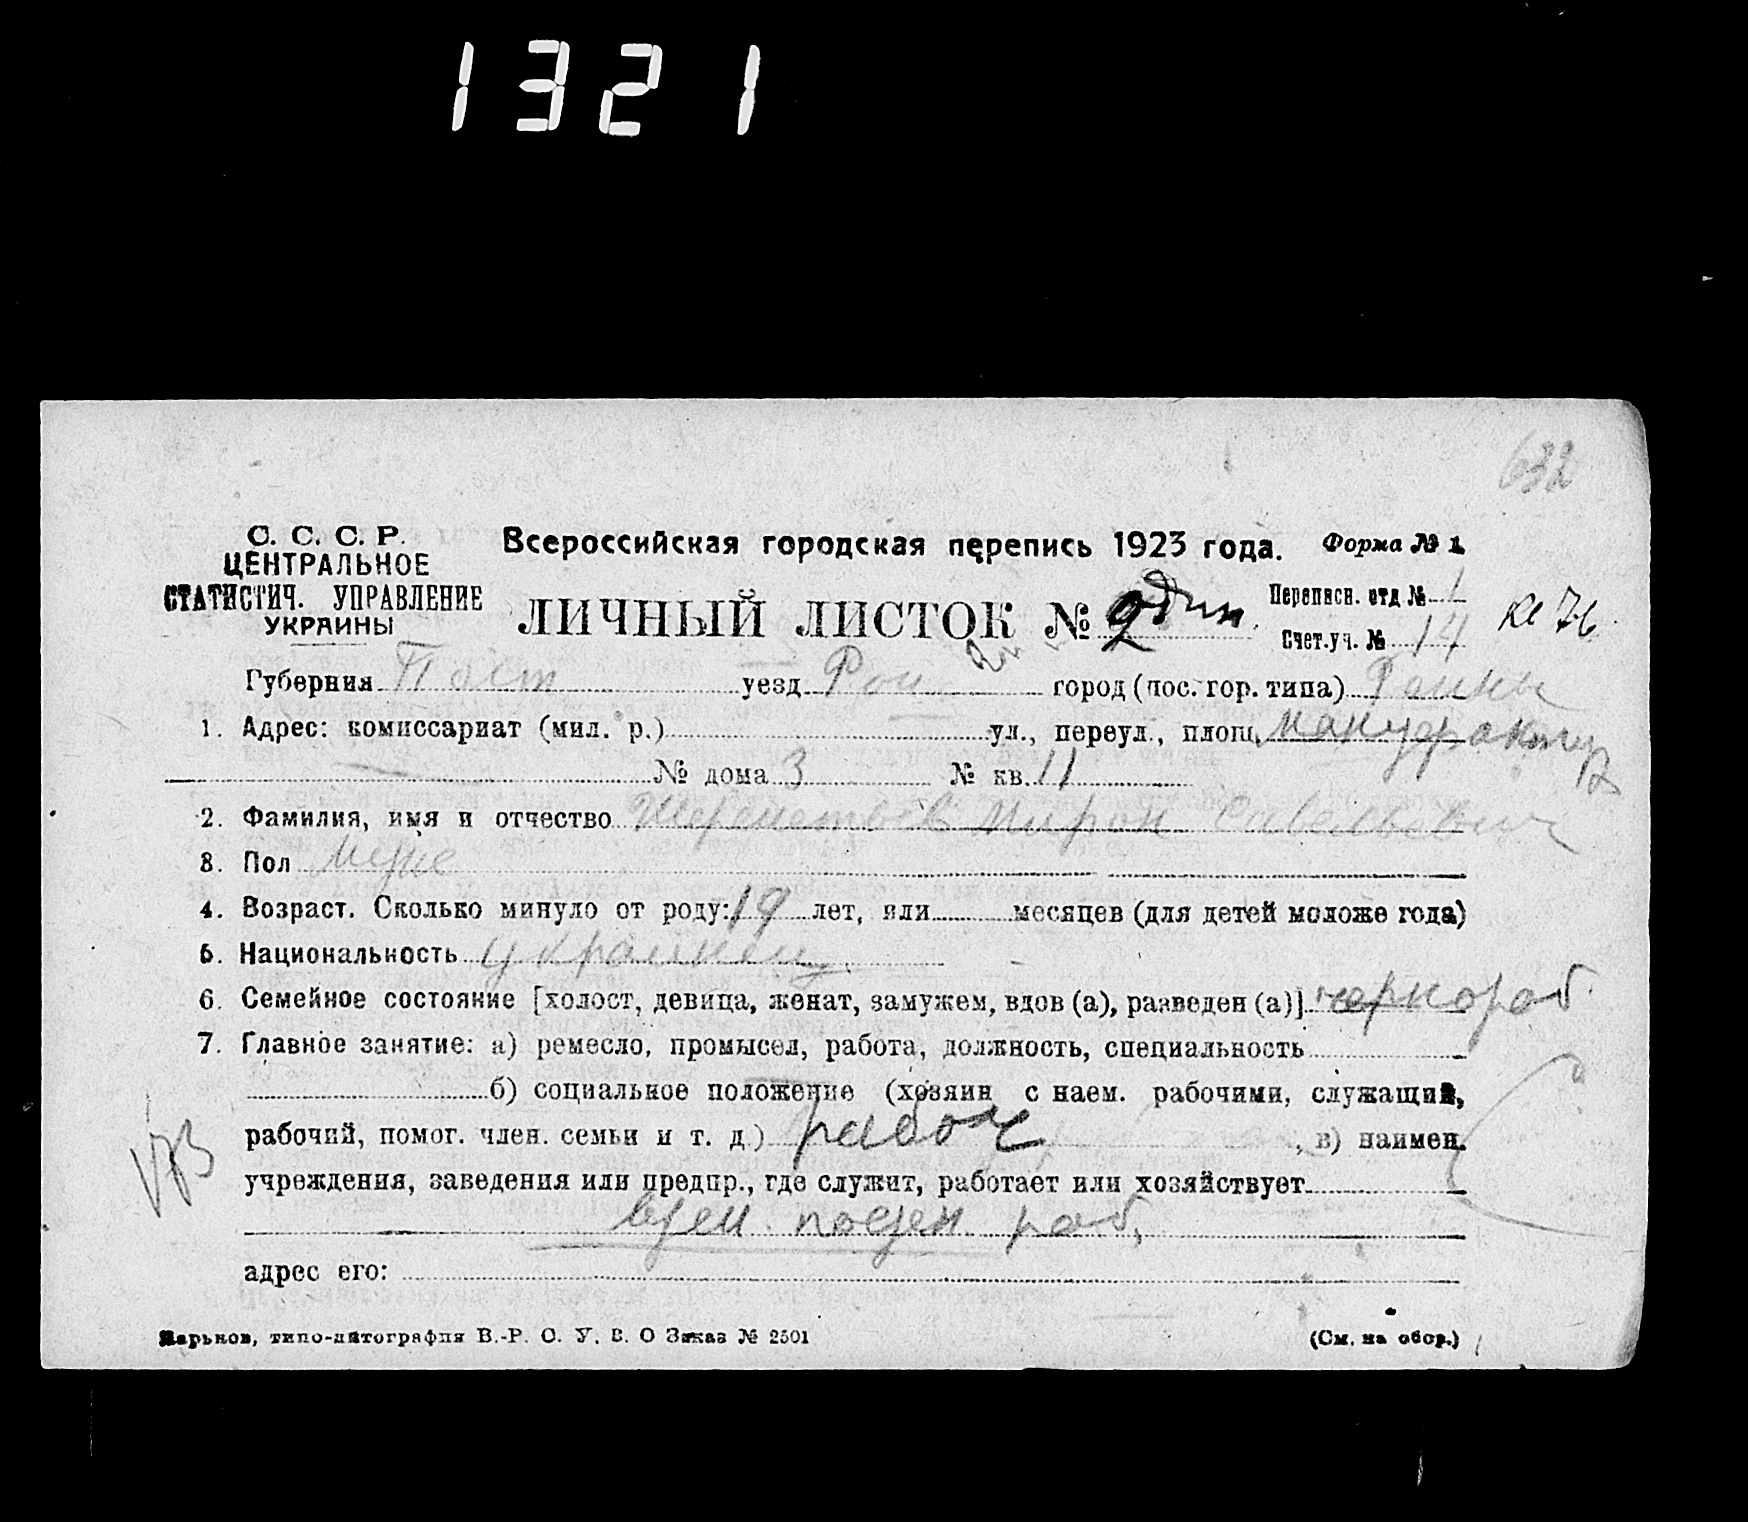 1321
632
С. С. С. Р.
ЦЕНТРАЛЬНОЕ
СТАТИСТИЧ. УПРАВЛЕНИЕ
УКРАИНЫ
Всероссийская городская перепись 1923 года.
Форма № 1.
ЛИЧНЫЙ ЛИСТОК № один
Переписн. отд № 1
Счет.уч. № 14
Губерния уезд Ром город (пос. гор. типа) Ромны
1. Адрес: комиссариат (мил. р.) ул., переул., площ.
№ дома 3 № кв. 11
2. Фамилия, имя и отчество Шереметьев Мирон Савельевич
3. Пол Муж
4. Возраст. Сколько минуло от роду: 19 лет, или месяцев (для детей моложе года)
5. Национальность украинец
6. Семейное состояние [холост, девица, женат, замужем, вдов (а), разведен (а)] чернораб.
7. Главное занятие: а) ремесло, промысел, работа, должность, специальность
б) социальное положение (хозяин с наем. рабочими, служащий,
рабочий, помог. член. семьи и т. д.) рабоч , в) наимен.
учреждения, заведения или предпр., где служит, работает или хозяйствует
поден раб,
адрес его:
Харьков, типо-литография В.-Р. С. У. В. О Заказ № 2501
(См. на обор.)